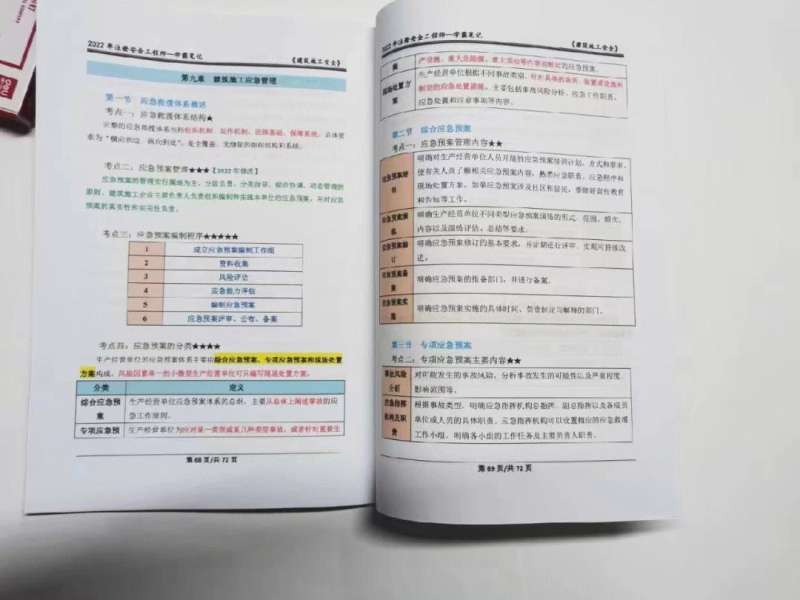 2022 年注册安全工程师—学霸笔记 《建筑施工安全》
第九章 建筑施工应急管理
第一节 应急救援体系概述
考点一：应急救援体系结构★
完整的应急救援体系包括组织机制、运作机制、法制基础、保障系统，总体要
求为“横向到边、纵向到底”，是全覆盖、无缝隙的组织结构和系统。
考点二：应急预案管理★★★【2022 年修改】
应急预案的管理实行属地为主、分级负责、分类指导、综合协调、动态管理的
原则。建筑施工企业主要负责人负责组织编制和实施本单位的应急预案，并对应急
预案的真实性和实用性负责。
考点三：应急预案编制程序★★★★★
1 成立应急预案编制工作组
2 资料收集
3 风险评估
4 应急能力评估
5 编制应急预案
6 应急预案评审、公布、备案
考点四：应急预案的分类★★★★
生产经营单位的应急预案体系主要由综合应急预案、专项应急预案和现场处置
方案构成。风险因素单一的小微型生产经营单位可只编写现场处置方案。
分类 定义
综合应急预案 生产经营单位应急预案体系的总纲，主要从总体上阐述事故的应
急工作原则。
专项应急预 生产经营单位为应对某一类型或某几种类型事故，或者针对重要生
第 68 页/共 72 页
2022 年注册安全工程师—学霸笔记 《建筑施工安全》
案 产设施、重大危险源、重大活动等内容而制定的应急预案。
现场处置方案 生产经营单位根据不同事故类别，针对具体的场所、装置或设施所
制定的应急处置措施，主要包括事故风险分析、应急工作职责、
应急处置和注意事项等内容。
第二节 综合应急预案
考点一：应急预案管理内容★★
应急预案培训 明确对生产经营单位人员开展的应急预案培训计划、方式和要求，
使有关人员了解相关应急预案内容，熟悉应急职责、应急程序和
现场处置方案。如果应急预案涉及社区和居民，要做好宣传教育
和告知等工作。
应急预案演练 明确生产经营单位不同类型应急预案演练的形式、范围、频次、
内容以及演练评估、总结等要求。
应急预案修订 明确应急预案修订的基本要求，并定期进行评审，实现可持续改
进。
应急预案备案 明确应急预案的报备部门，并进行备案。
应急预案实施 明确应急预案实施的具体时间、负责制定与解释的部门。
第三节 专项应急预案
考点二：专项应急预案主要内容★★
事故风险分析 对可能发生的事故风险，分析事故发生的可能性以及严重程度、
影响范围等。
应急指挥机构及职责 根据事故类型，明确应急指挥机构总指挥、副总指挥以及各成员
单位或人员的具体职责。应急指挥机构可以设置相应的应急救援
工作小组，明确各小组的工作任务及主要负责人职责。
第 69 页/共 72 页